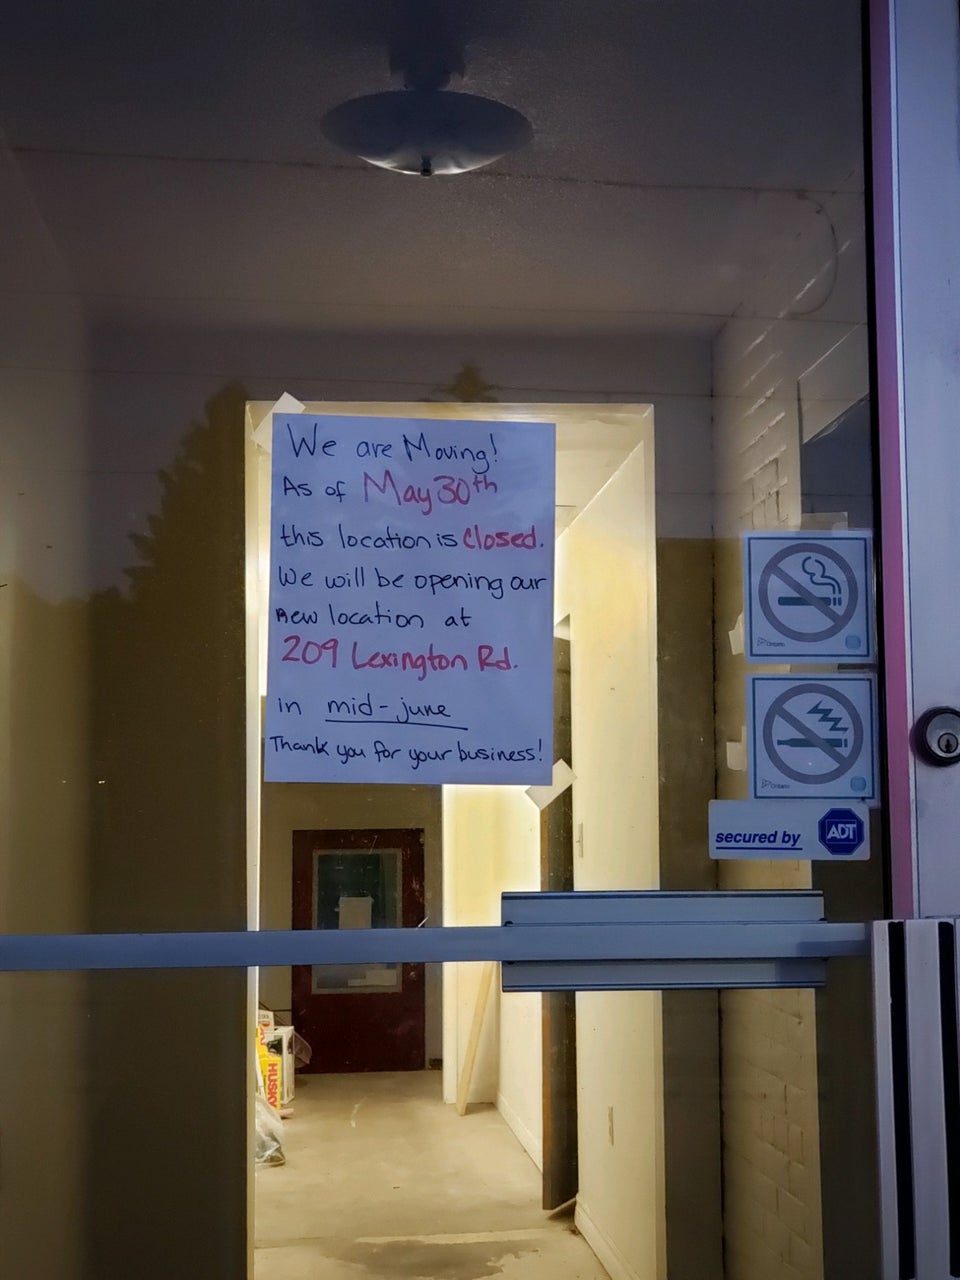 We are Moving!
As of May 30th
this location is Closed.
We will be opening our
new location at
209 Lexington Rd.
in mid-june
Thank you for your business!
Ontario
Ontario
secured by ADT
HUSKY